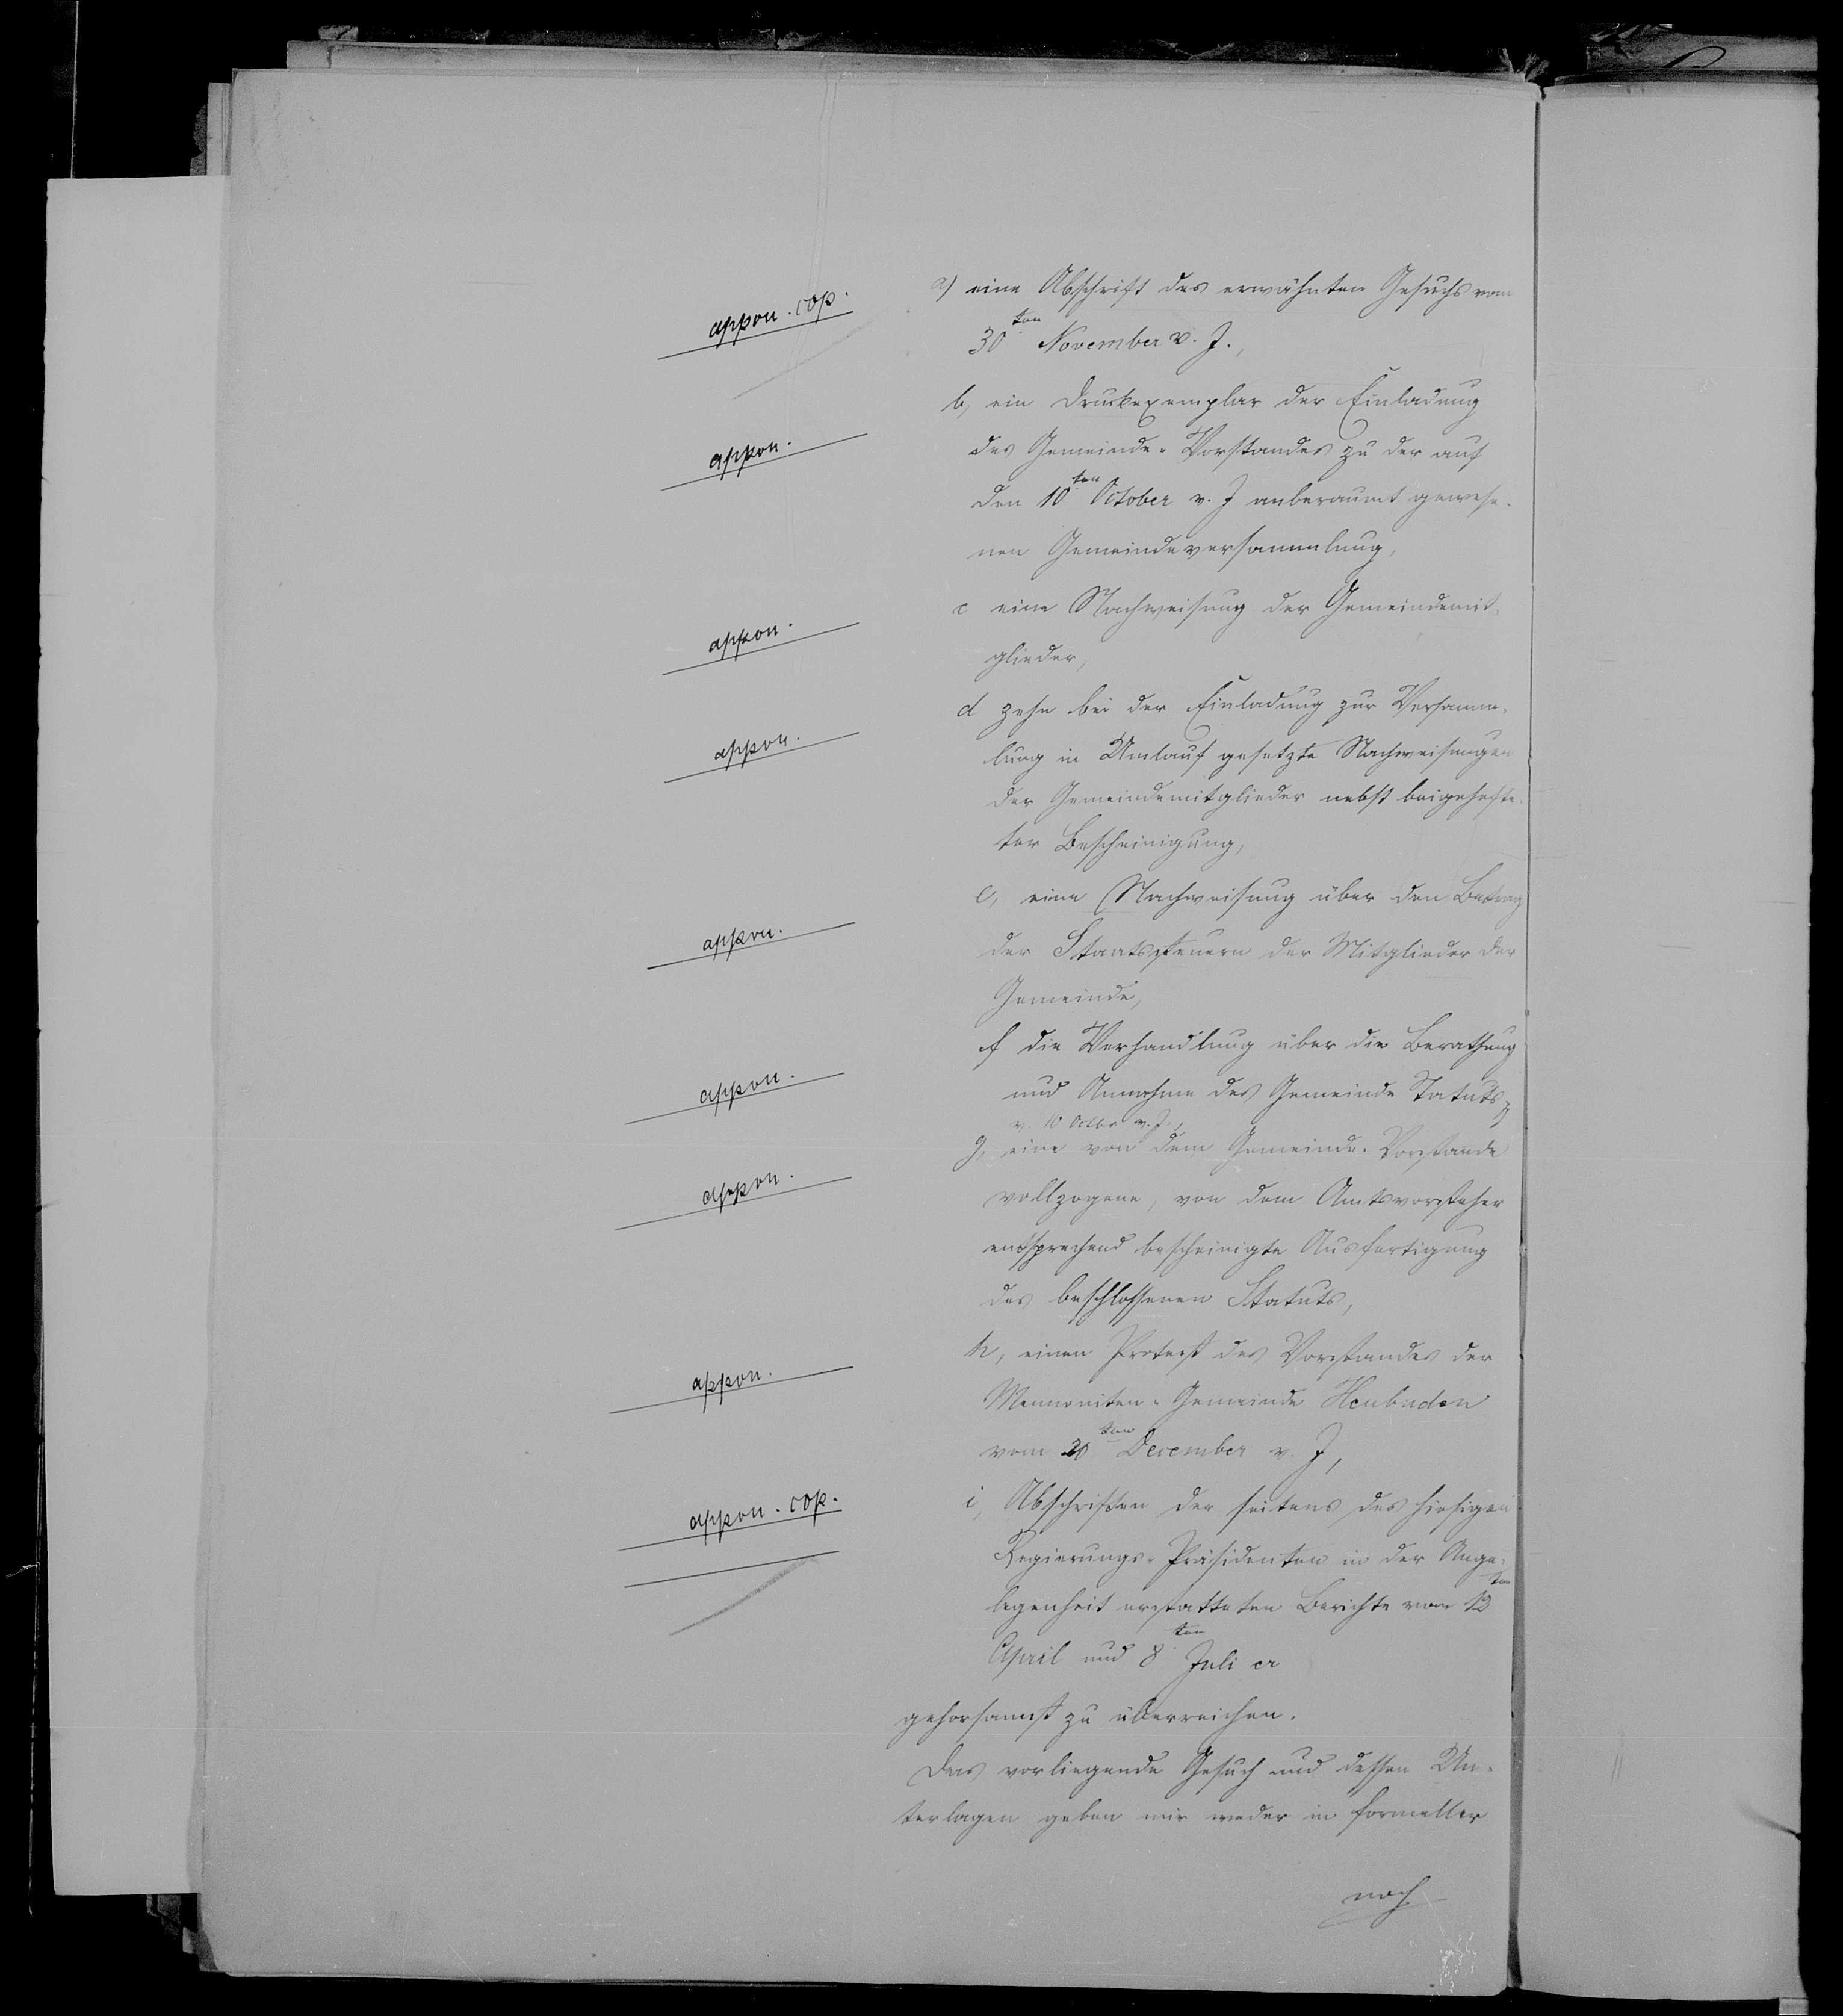 appon. cop.
a) eine Abschrift des erwähnten Gesuchs vom
30ten November v. J.,
b, ein Druckexemplar der Einladung
appon.
des Gemeinde-Vorstandes zu der auf
den 10ten October v. J anberaumt gewese-
nen Gemeindeversammlung,
appon.
c eine Nachweisung der Gemeindemit-
glieder,
d zehn bei der Einladung zur Versamm-
appon.
lung in Umlauf gesetzte Nachweisungen
der Gemeindemitglieder nebst beigehefte-
ter Bescheinigung,
e, eine Nachweisung über den Betrag
appon.
der Staatssteuern der Mitglieder der
Gemeinde,
f die Verhandlung über die Berathung
appon.
und Annahme des Gemeinde Statuts
v. 10 Octbr v. J.,
g, eine von dem Gemeinde-Vorstande
appon.
vollzogene, von dem Amtsvorsteher
entsprechend bescheinigte Ausfertigung
des beschlossenen Statuts,
h, einen Protest des Vorstandes der
appon.
Mennoniten-Gemeinde Heubuden
vom 20ten December v. J,
appon. cop.
i, Abschriften der seitens des hiesigen
Regierungs-Präsidenten in der Ange-
legenheit erstatteten Berichte vom 12ten
April und 8ten Juli cr
gehorsamst zu überreichen.
Das vorliegende Gesuch und dessen Un-
terlagen geben mir weder in formeller
noch